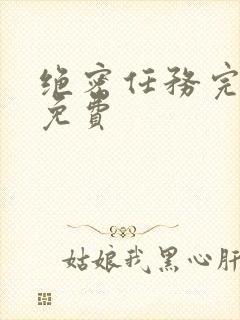 绝密任务完
免費
姑娘我黑心肝